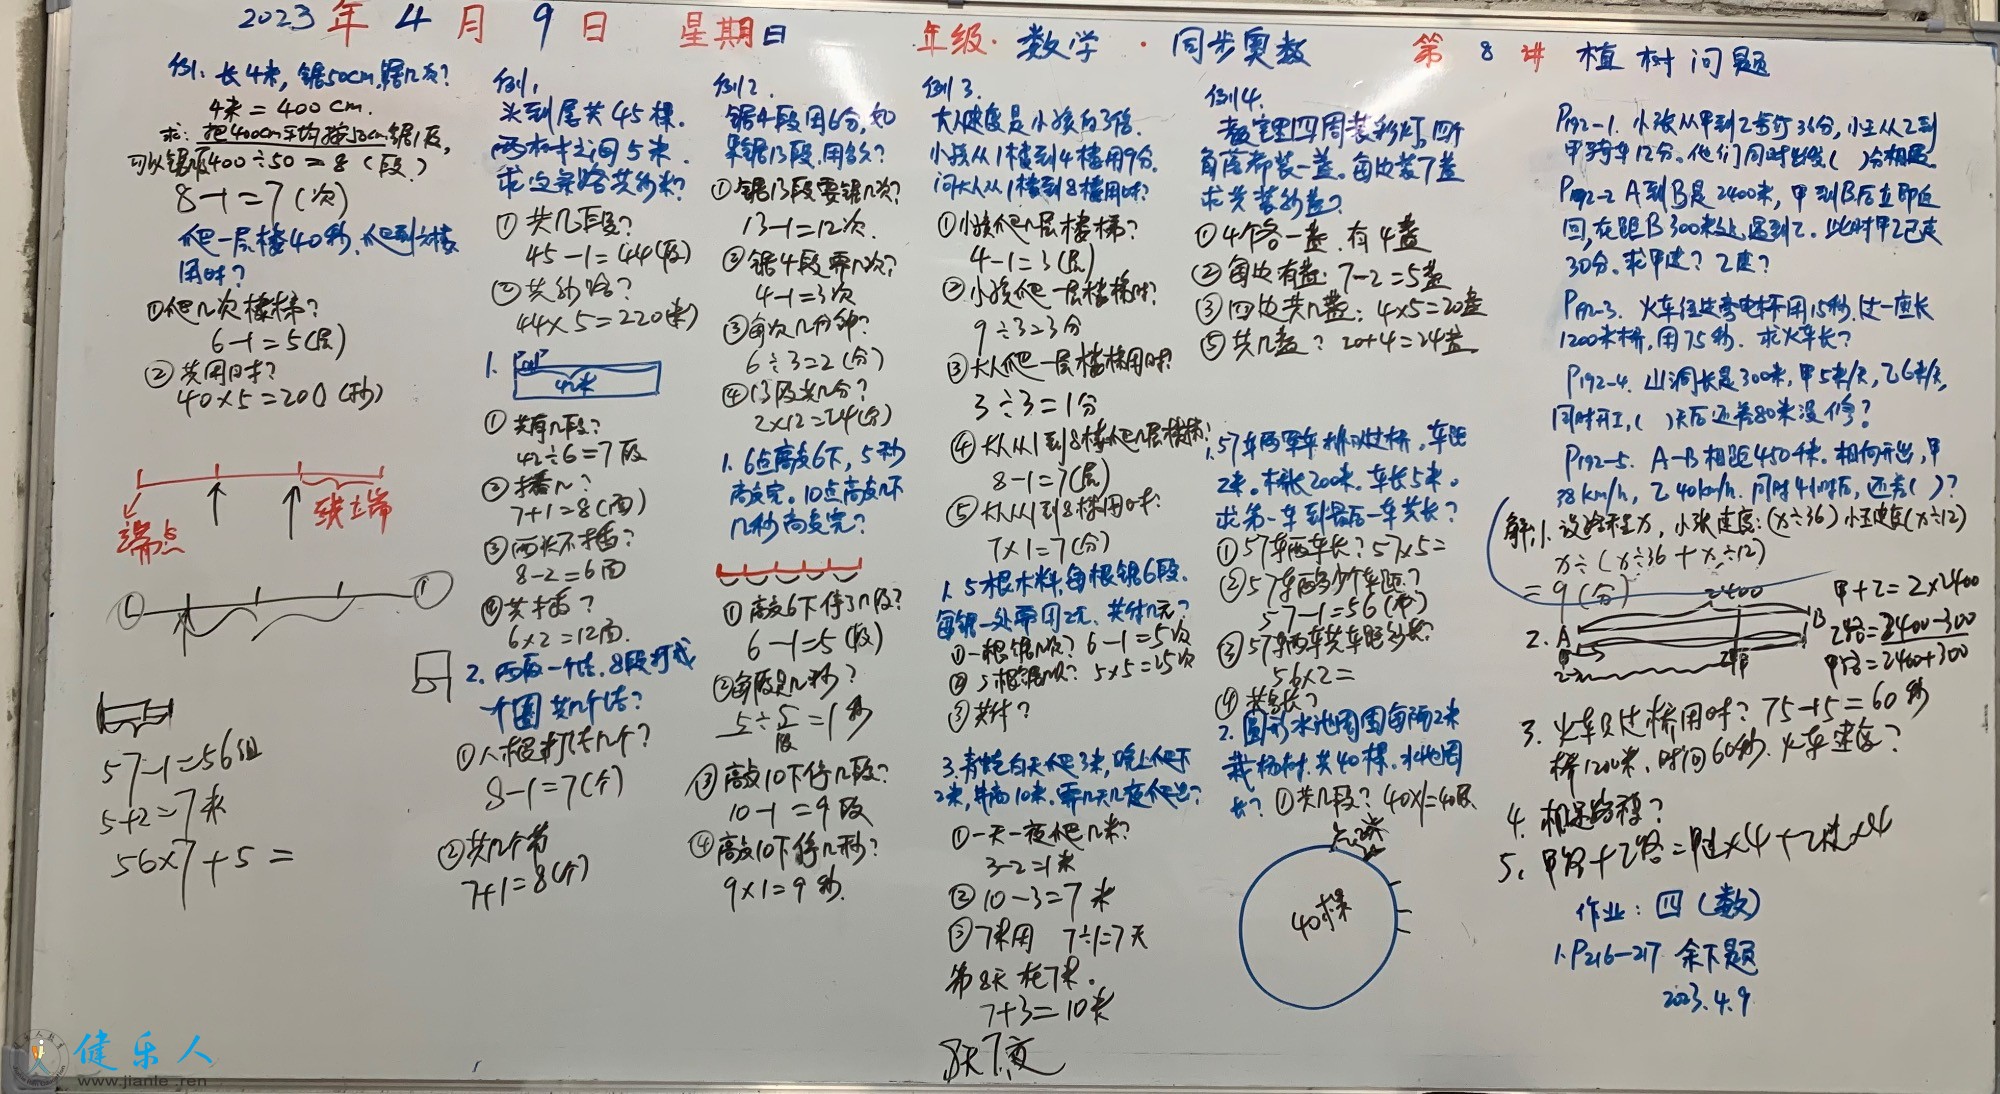 2023年4月9日 星期日 年级·数学·同步奥数 第8讲 植树问题
例1. 长4米,锯50cm,锯几次?
4米=400cm.
求:把400cm平均按50cm锯1段,
可以锯成400÷50=8(段)
8-1=7(次)
爬一层楼40秒,爬到六楼
用时?
①爬几次楼梯?
6-1=5(层)
②共用时?
40×5=200(秒)
端点
57-1=56组
5+2=7米
56×7+5=
例1.
头到尾共45棵.
两树之间5米.
求这条路共多少米?
①共几段?
45-1=44(段)
②共多少路?
44×5=220(米)
1.
42米
①共有几段?
42÷6=7段
②插几?
7+1=8(面)
③两头不插?
8-2=6面
④共插?
6×2=12面.
2.两段一个结.8段打成
一个圈 共几个结?
8-1=7(个)
②共几个节
7+1=8(个)
例2.
锯4段用6分,如
果锯13段,用多久?
①锯13段要锯几次?
13-1=12次.
②锯4段需几次?
4-1=3次
③每次几分钟?
6÷3=2(分)
④13段共几分?
2×12=24(分)
1.6点敲6下,5秒
敲完。10点敲几下
几秒敲完?
①敲6下停了几段?
6-1=5(段)
②每段是几秒?
5÷5段=1秒
③敲10下停几段?
10-1=9段
④敲10下停几秒?
9×1=9秒.
例3.
大人速度是小孩的3倍.
小孩从1楼到4楼用9分.
问大人从1楼到8楼用时?
①小孩爬几层楼梯?
4-1=3(层)
②小孩爬一层楼梯时?
9÷3=3分
③大人爬一层楼梯用时?
3÷3=1分
④大人从1到8楼爬几层楼梯?
8-1=7(层)
⑤大人从1到8楼用时?
7×1=7(分)
1.5根木料,每根锯6段.
每锯一处需用2元.共付几元?
①一根锯几次? 6-1=5次
②5根锯几次? 5×5=25次
③共付?
3.青蛙白天爬3米,晚上爬下
2米,井高10米.需几天几夜爬出?
①一天一夜爬几米?
3-2=1米
②10-3=7米
③7米用 7÷1=7天
第8天在7米.
7+3=10米
8天7夜
例4.
教室里四周装彩灯,四个
角落都装一盏。每边装7盏
求共装多少盏?
①4个角各一盏.有4盏
②每边有盏:7-2=5盏
③四边共几盏:4×5=20盏
⑤共几盏? 20+4=24盏
1.57车两军车排队过桥,车距
2米。桥长200米.车长5米.
求第一车到最后一车共长?
①57车两车长?57×5=
②57车两多少个车距?
57-1=56(个)
③57车两车共车距多长?
56×2=
④共多长?
2.圆形水池周围每隔2米
栽杨树.共40棵.水池周
长? ①共几段? 40×1=40段
40棵
P192-1. 小张从甲到乙步行36分,小王从乙到
甲骑车12分。他们同时出发( )分相遇
P192-2 A到B是2400米,甲到B后立即返
回,在距B300米处遇到乙.此时甲乙已走
30分。求甲速?乙速?
P192-3. 火车经过旁电杆用15秒.过一座长
1200米桥,用75秒. 求火车长?
P192-4. 山洞长是300米,甲5米/天,乙6米/天,
同时开工,( )天后还差80米没修?
P192-5. A-B相距450千米.相向开出,甲
38km/h,乙40km/h.同时4小时后,还差( )?
解:1.设路程x,小张速度:(x÷36)小王速度(x÷12)
x÷(x÷36+x÷12)
=9(分)
2. A 2400 B
甲+乙=2×2400
乙路=2400-300
甲路=2400+300
3. 火车只过桥用时? 75-15=60秒
桥1200米,时间60秒.火车速度?
4. 相遇路程?
5. 甲路+乙路=甲速×4+乙速×4
作业:四(数)
1.P216-217 余下题
2023.4.9
健乐人
www.jianle.ren